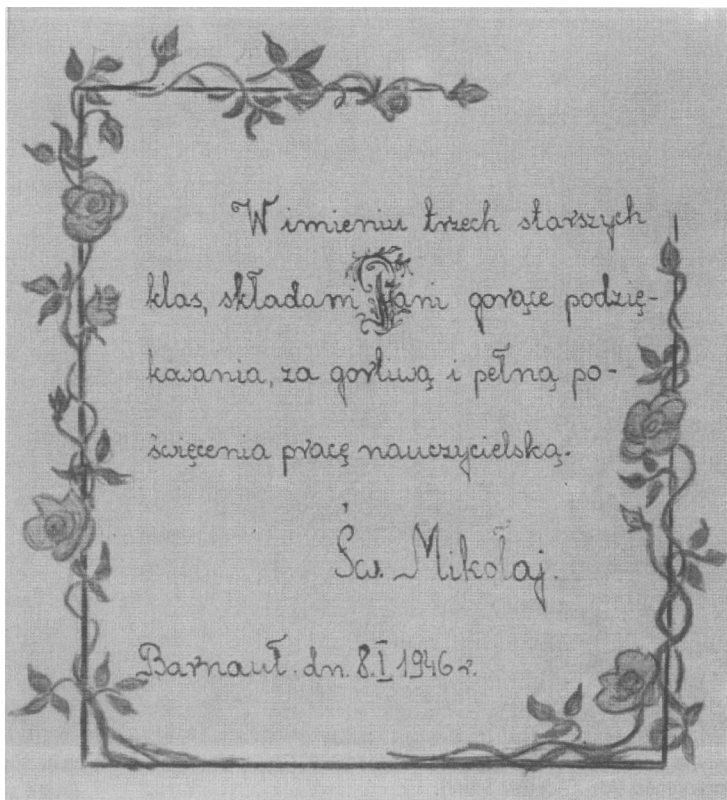 W imieniu trzech starszych
klas, składam Pani gorące podzię-
kowania, za gorliwą i pełną po-
święcenia pracę nauczycielską.
Św. Mikołaj.
Barnauł. dn. 8.I 1946 r.